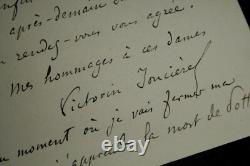 après-demain
rendez-vous vous agrée.
Mes hommages à ces dames
Victorin Joncières
moment où je vais fermer ma
la mort de